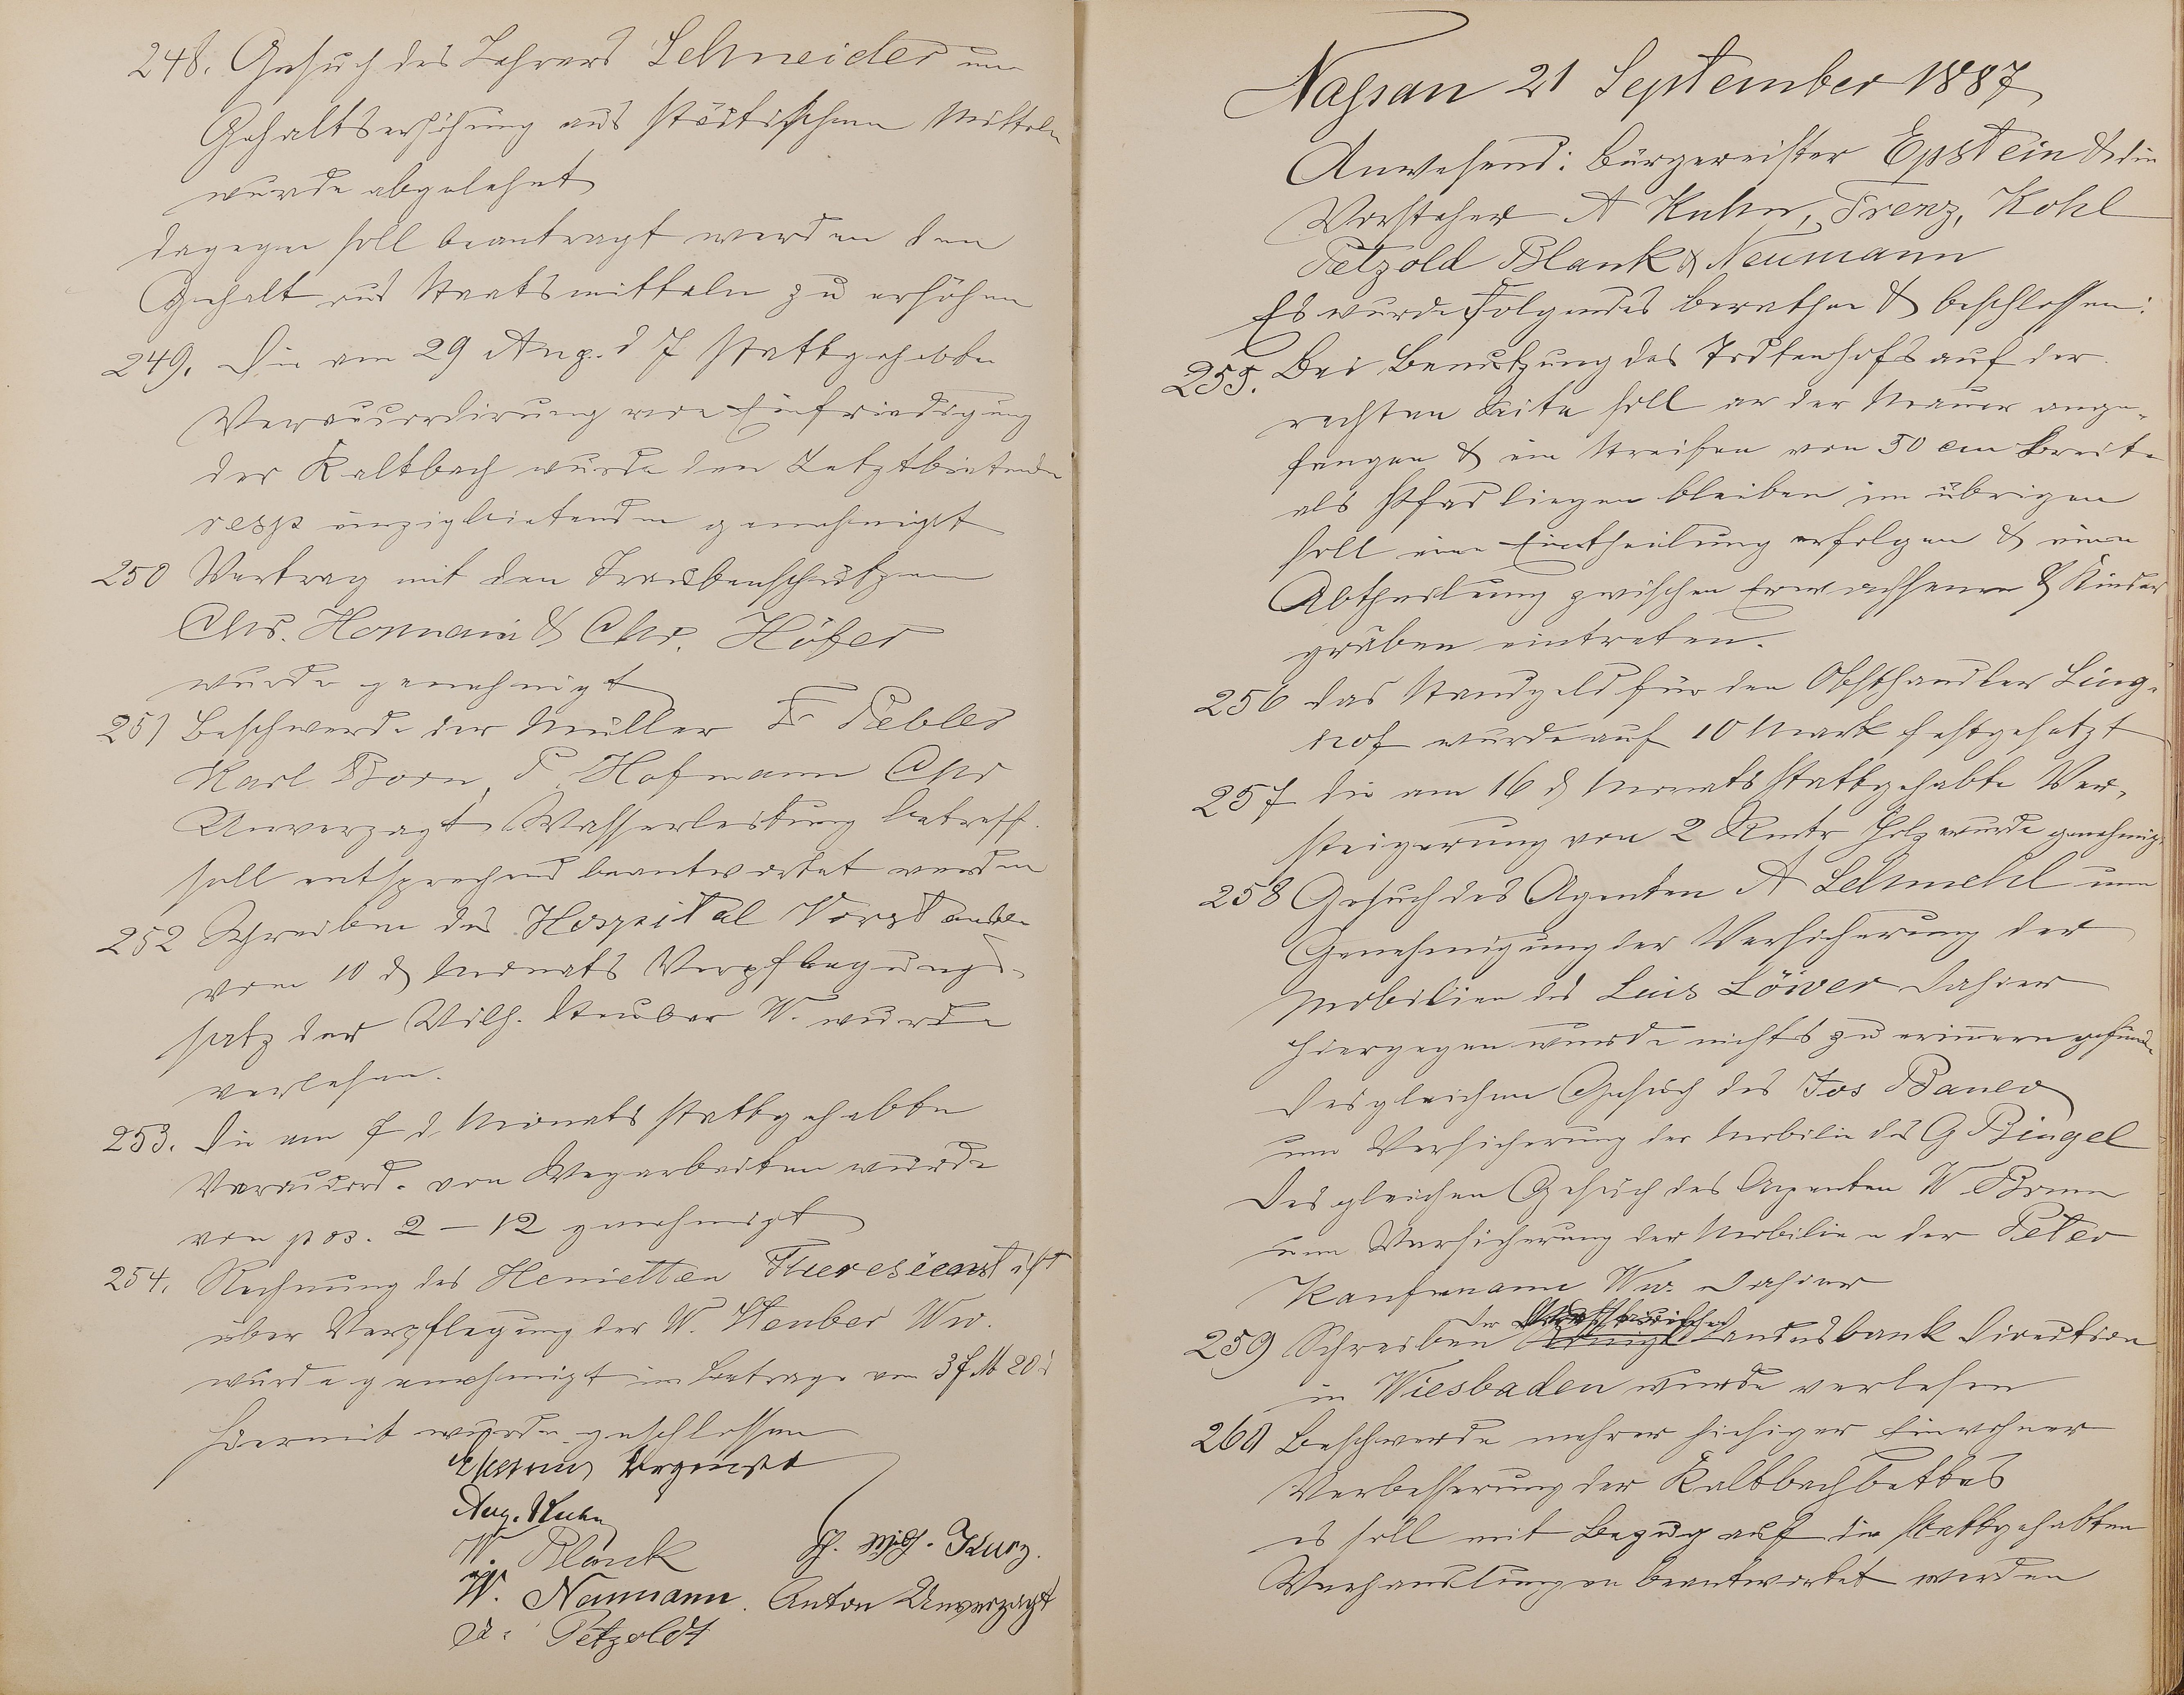 248. Gesuch des Lehrers Schneider um
Gehaltserhöhung aus städtischen Mitteln
wurde abgelehnt
dagegen soll beantragt werden den
Gehalt aus Staatsmitteln zu erhöhen
249. Die am 29 Aug. d J stattgehabte
Veraccordirung von Einfriedigung
der Kaltbach wurde den Letztbietenden
resp einzigbietenden genehmigt
250 Vertrag mit den Traubenschützen
Chr. Hermann & Chr. Höfer
wurde genehmigt
251 Beschwerde der Müller F Pebler
Karl Born, P Hofmann Chr
Unverzagt Wasserleitung betreff.
soll entsprechend beantwortet werden
252 Schreiben des Hospital Vorstandes
vom 10 d Monats Verpflegungs-
satz der Wilh. Steuber W. wurde
verlesen.
253. Die am 7 d. Monats stattgehabte
Veraccord. von Wegarbeiten wurde
von pos. 2 – 12 genehmigt
254. Rechnung des Henrietten Theresienstift
über Verpflegung der W. Steuber Ww.
wurde genehmigt im Betrage von 37 M 20 d
Hiermit wurde geschlossen
Epstein
Aug. Kuhn
W. Blank Ph. Wilh. Kurz.
W. Neumann. Anton Unverzagt
Petzoldt
Nassau 21 September 1887
Anwesend: Bürgermeister Epstein & die
Vorsteher A Kuhn, Trenz, Kohl
Petzold Blank & Neumann
Es wurde folgendes berathen & beschlossen:
255. Bei Benutzung des Todtenhofs auf der
rechten Seite soll an der Mauer ange-
fangen & ein Streifen von 50 cm Breite
als Pfad liegen bleiben im übrigen
soll eine Eintheilung erfolgen & eine
Abtheilung zwischen Erwachsenen & Kinder
gräben eintreten.
256 das Standgeld für den Obsthändler Ling-
hof wurde auf 10 Mark festgesetzt
257 die am 16 d Monats stattgehabte Ver-
steigerung von 2 Rmtr Holz wurde genehmigt
258 Gesuch des Agenten A Schmehl um
Genehmigung der Versicherung der
Mobilien des Luis Löwer dahier
hiergegen wurde nichts zu erinnern gefunden
Desgleichen Gesuch des Jos Bauer
um Versicherung der Mobilien des G Bingel
Desgleichen Gesuch des Agenten W. Brunn
um Versicherung der Mobilien der Peter
Kaufmann Ww. dahier
259 Schreiben der Landesbank Direction
in Wiesbaden wurde verlesen
260 Beschwerde mehrer hiesiger Einwohner
Verbesserung der Kaltbachbettes
es soll mit Bezug auf die stattgehabten
Verhandlungen beantwortet werden